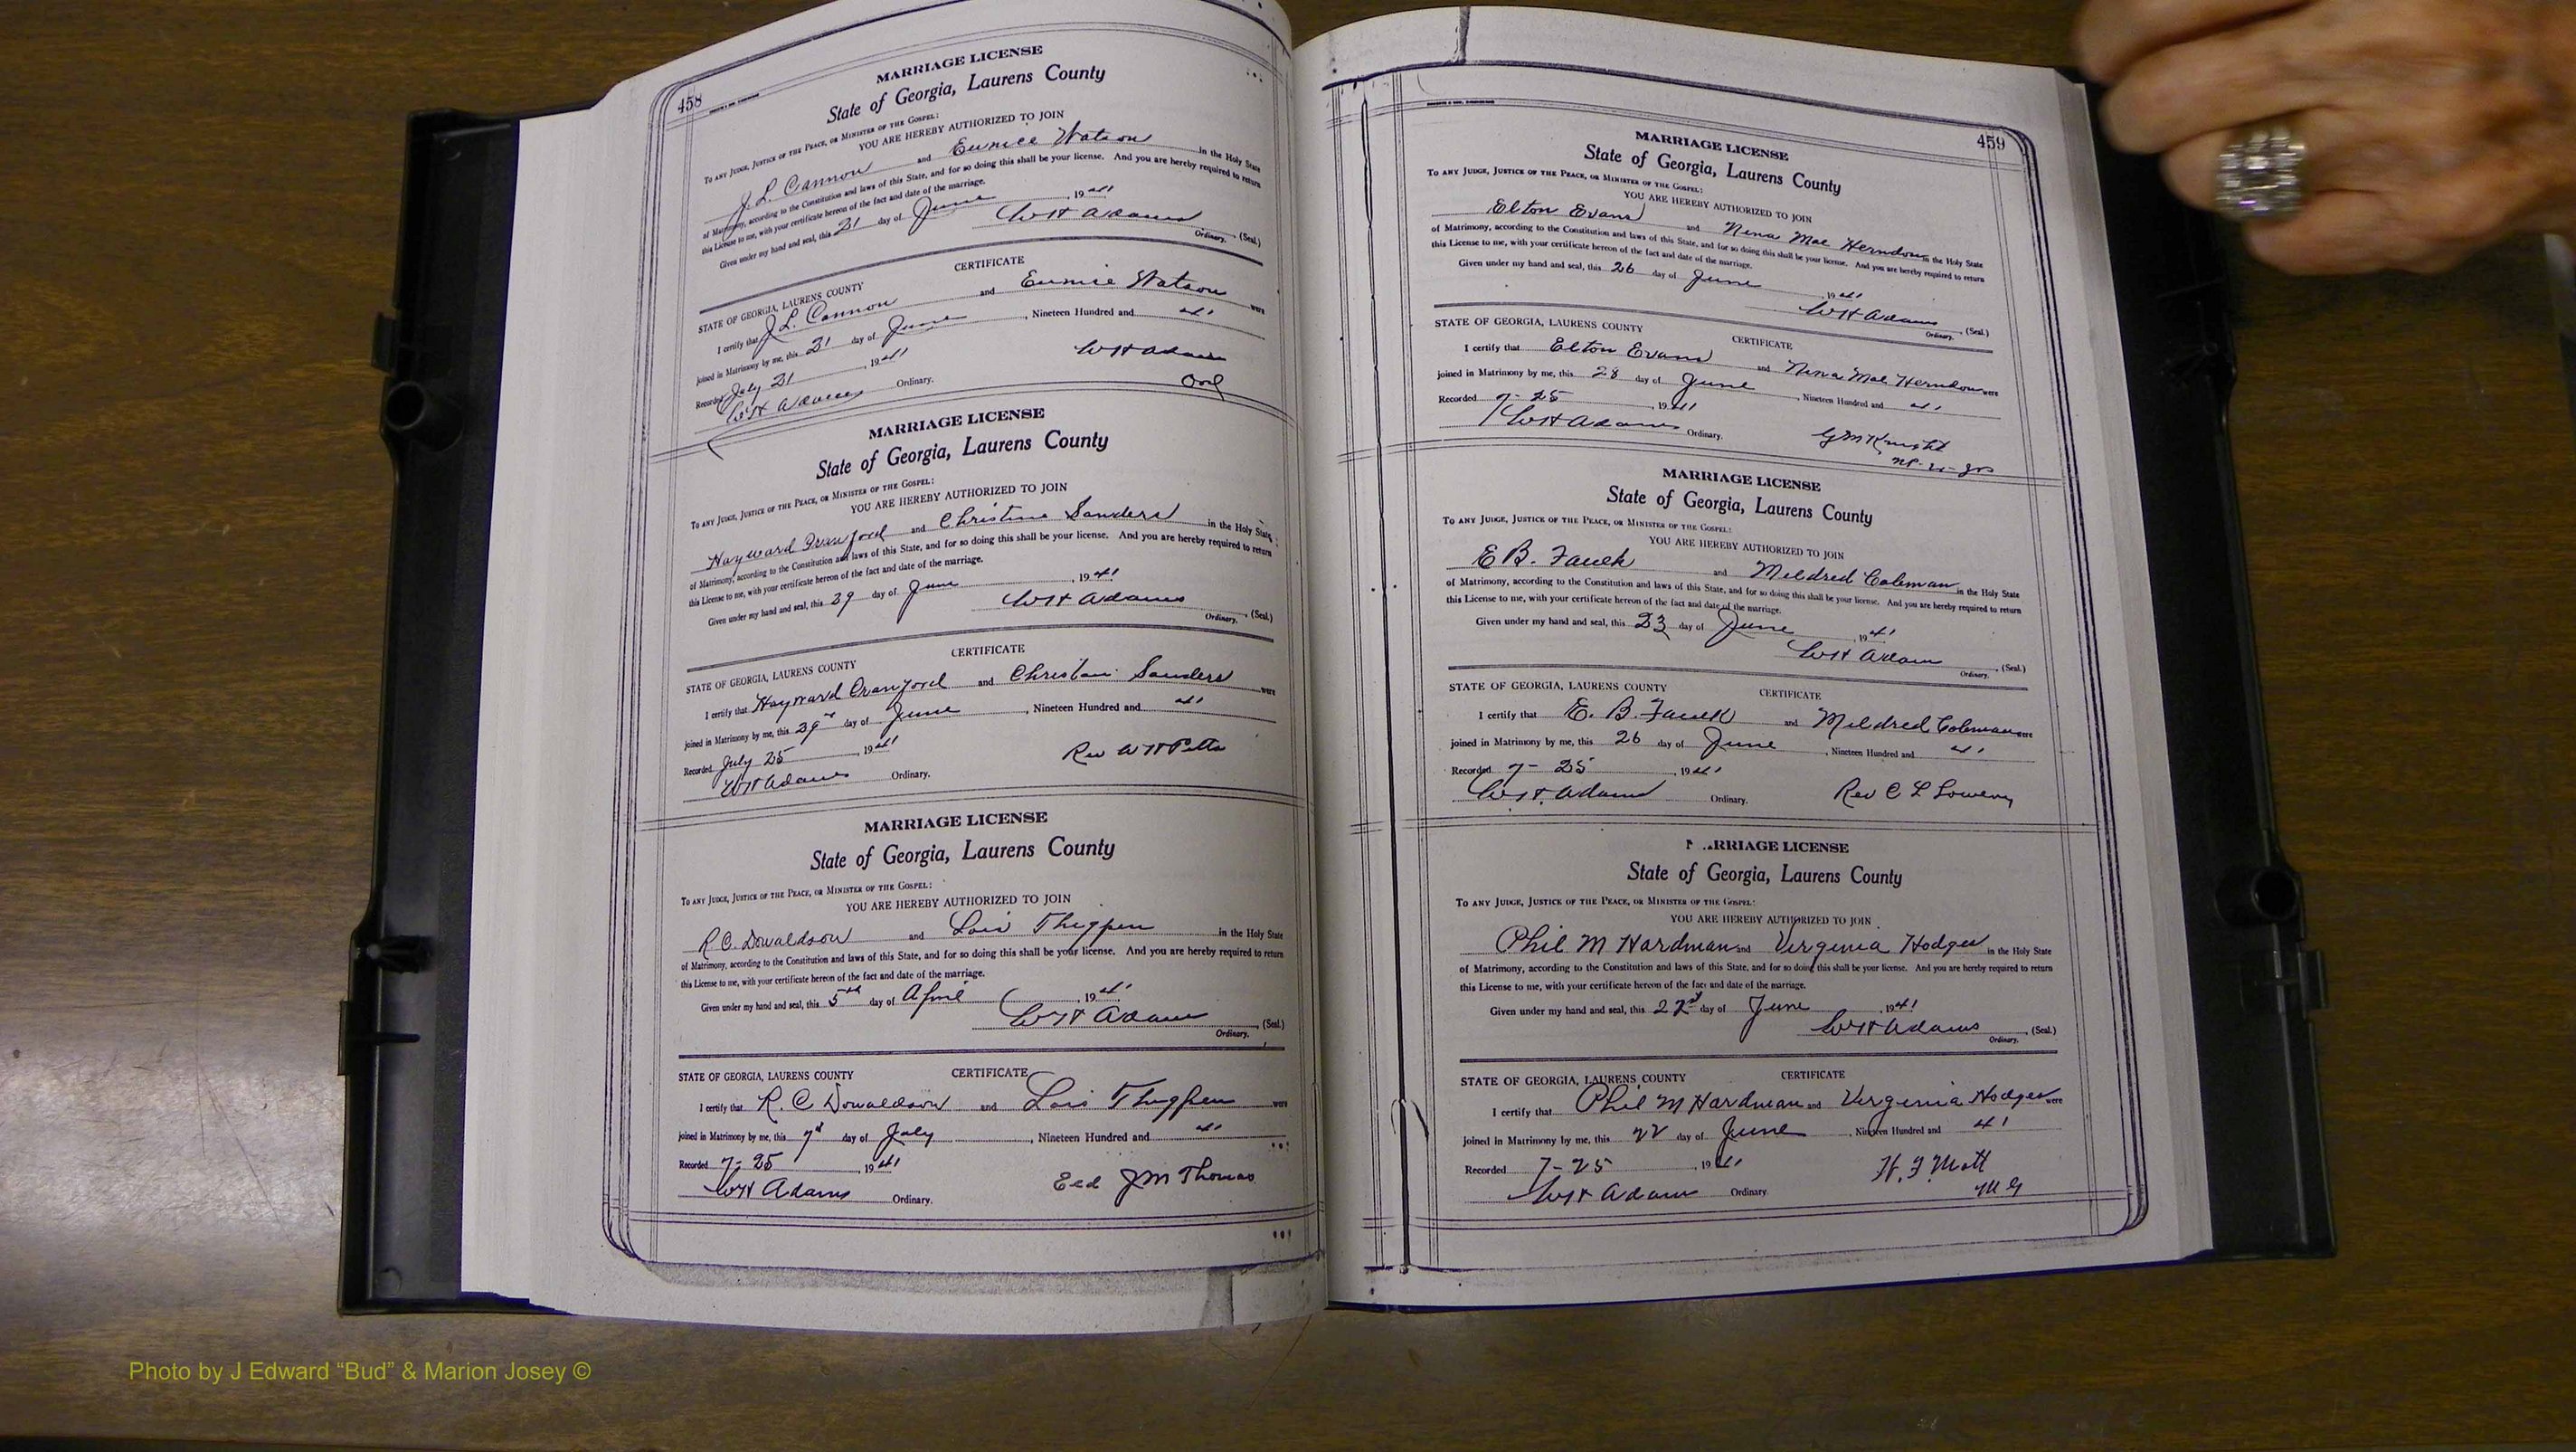 458
MARRIAGE LICENSE
State of Georgia, Laurens County
To any Judge, Justice of the Peace, or Minister of the Gospel:
YOU ARE HEREBY AUTHORIZED TO JOIN
J. L. Cannon and Eunice Watson in the Holy State
of Matrimony, according to the Constitution and laws of this State, and for so doing this shall be your license. And you are hereby required to return
this License to me, with your certificate hereon of the fact and date of the marriage.
Given under my hand and seal, this 21 day of June, 1941
WH Adams (Seal.)
Ordinary.
CERTIFICATE
STATE OF GEORGIA, LAURENS COUNTY
I certify that J L. Cannon and Eunice Watson were
joined in Matrimony by me, this 21 day of June, Nineteen Hundred and 41
Recorded July 21, 1941 WH Adams
WH Adams Ordinary. Ord
MARRIAGE LICENSE
State of Georgia, Laurens County
To any Judge, Justice of the Peace, or Minister of the Gospel:
YOU ARE HEREBY AUTHORIZED TO JOIN
Hayward Crawford and Christine Sanders in the Holy State
of Matrimony, according to the Constitution and laws of this State, and for so doing this shall be your license. And you are hereby required to return
this License to me, with your certificate hereon of the fact and date of the marriage.
Given under my hand and seal, this 29 day of June, 1941
WH Adams (Seal.)
Ordinary.
CERTIFICATE
STATE OF GEORGIA, LAURENS COUNTY
I certify that Hayward Crawford and Sanders were
joined in Matrimony by me, this 29 day of June, Nineteen Hundred and 41
Recorded July 25, 1941 Rev W H
WH Adams Ordinary.
MARRIAGE LICENSE
State of Georgia, Laurens County
To any Judge, Justice of the Peace, or Minister of the Gospel:
YOU ARE HEREBY AUTHORIZED TO JOIN
R C. Donaldson and Lois Thigpen in the Holy State
of Matrimony, according to the Constitution and laws of this State, and for so doing this shall be your license. And you are hereby required to return
this License to me, with your certificate hereon of the fact and date of the marriage.
Given under my hand and seal, this 5th day of April, 1941
WH Adams (Seal.)
Ordinary.
STATE OF GEORGIA, LAURENS COUNTY CERTIFICATE
I certify that R. C Donaldson and Lois Thigpen were
joined in Matrimony by me, this 7 day of July, Nineteen Hundred and 41
Recorded 7-25, 1941 J M Thomas
WH Adams Ordinary.
459
MARRIAGE LICENSE
State of Georgia, Laurens County
To any Judge, Justice of the Peace, or Minister of the Gospel:
YOU ARE HEREBY AUTHORIZED TO JOIN
Elton Evans and Nina Mae Herndon in the Holy State
of Matrimony, according to the Constitution and laws of this State, and for so doing this shall be your license. And you are hereby required to return
this License to me, with your certificate hereon of the fact and date of the marriage.
Given under my hand and seal, this 26 day of June, 1941
WH Adams (Seal.)
Ordinary.
STATE OF GEORGIA, LAURENS COUNTY CERTIFICATE
I certify that Elton Evans and Nina Mae Herndon were
joined in Matrimony by me, this 28 day of June, Nineteen Hundred and 41
Recorded 7-25, 1941
WH Adams Ordinary. G M Knight
MARRIAGE LICENSE
State of Georgia, Laurens County
To any Judge, Justice of the Peace, or Minister of the Gospel:
YOU ARE HEREBY AUTHORIZED TO JOIN
E B. Faulk and Mildred Coleman in the Holy State
of Matrimony, according to the Constitution and laws of this State, and for so doing this shall be your license. And you are hereby required to return
this License to me, with your certificate hereon of the fact and date of the marriage.
Given under my hand and seal, this 23 day of June, 1941
WH Adams (Seal.)
Ordinary.
STATE OF GEORGIA, LAURENS COUNTY CERTIFICATE
I certify that E. B. Faulk and Mildred Coleman were
joined in Matrimony by me, this 26 day of June, Nineteen Hundred and 41
Recorded 7-25, 1941
WH. Adams Ordinary. Rev C L Lowery
RRIAGE LICENSE
State of Georgia, Laurens County
To any Judge, Justice of the Peace, or Minister of the Gospel:
YOU ARE HEREBY AUTHORIZED TO JOIN
Phil M Hardman and Virginia Hodges in the Holy State
of Matrimony, according to the Constitution and laws of this State, and for so doing this shall be your license. And you are hereby required to return
this License to me, with your certificate hereon of the fact and date of the marriage.
Given under my hand and seal, this 22nd day of June, 1941
WH Adams (Seal.)
Ordinary.
STATE OF GEORGIA, LAURENS COUNTY CERTIFICATE
I certify that Phil M Hardman and Virginia Hodges were
joined in Matrimony by me, this 22 day of June, Nineteen Hundred and 41
Recorded 7-25, 1941 H. F. Mott
WH Adams Ordinary. M G
Photo by J Edward “Bud” & Marion Josey ©